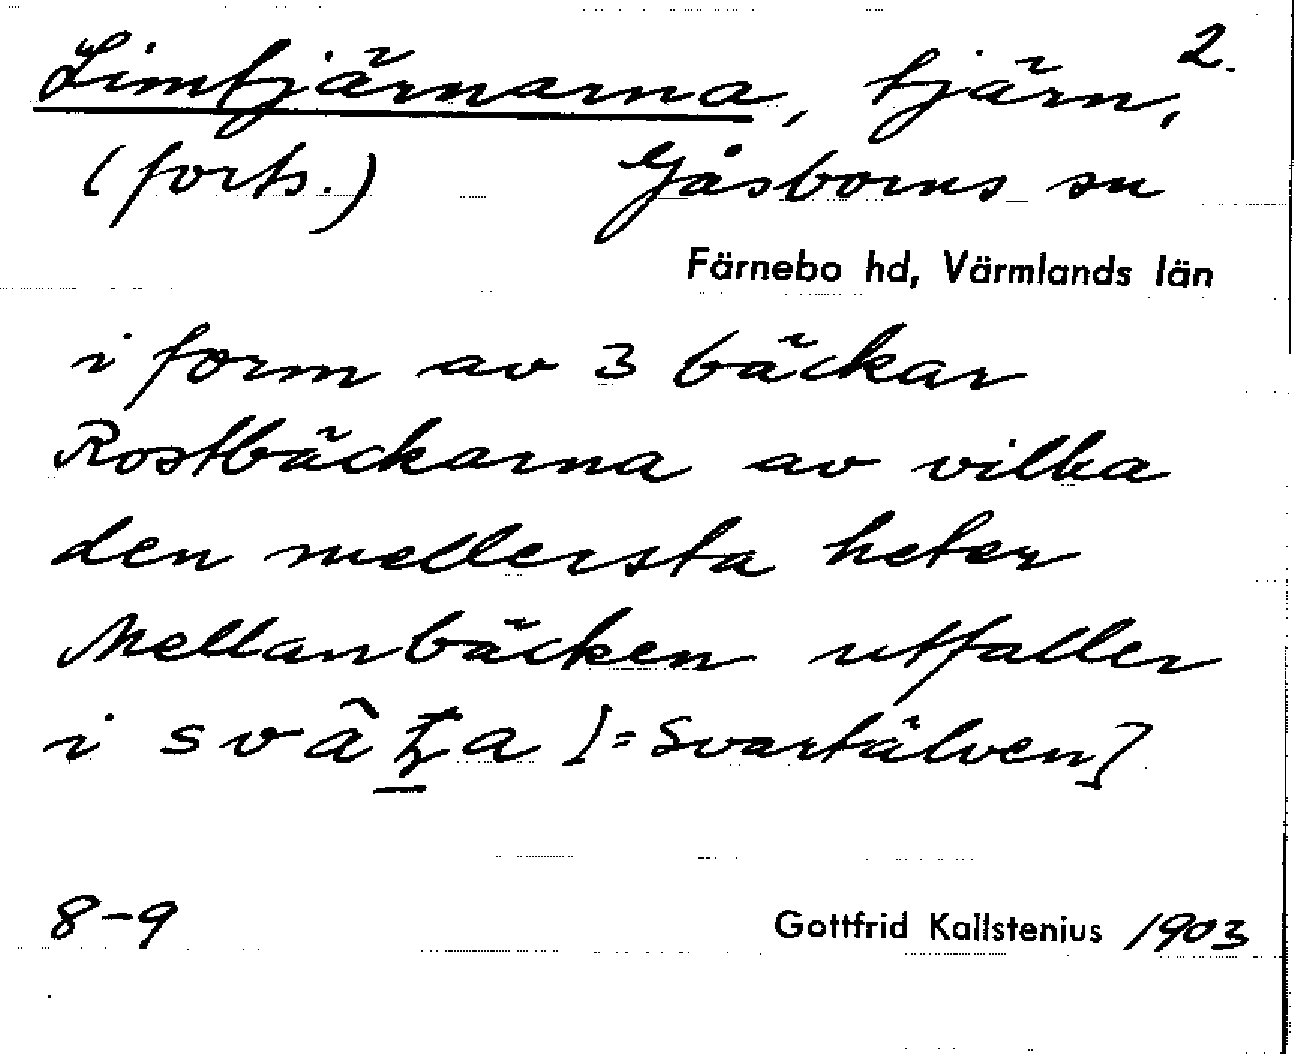 Limtjärnarna, tjärn, 2.
(forts.) Gåsborns sn
Färnebo hd, Värmlands län
i form av 3 bäckar
Rostbäckarna av vilka
den mellersta heter
Mellanbäcken utfaller
i [= Svartälven]
8-9 Gottfrid Kallstenius 1903